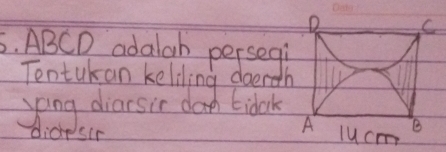 5. ABCD adalah persegi
Tentukan keliling daerah
yang diarsir dan tidak
diarsir
D C
A B
14 cm